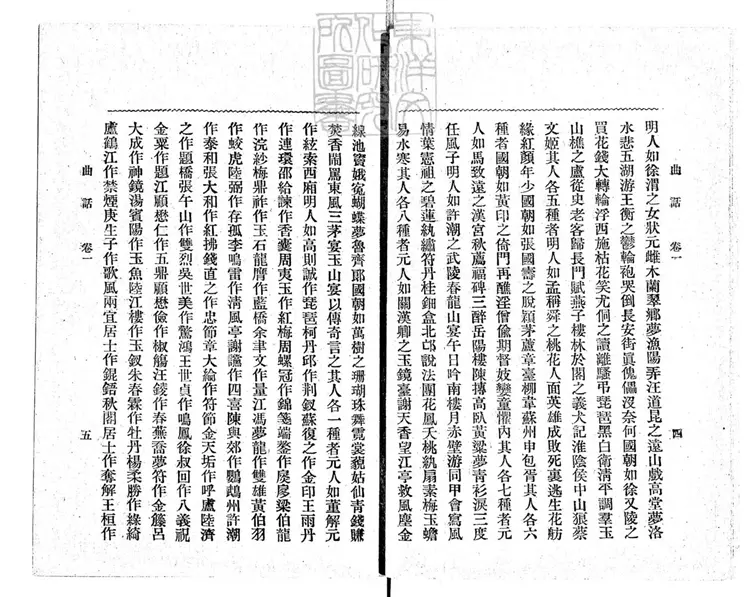 曲話 卷一 四
明人如徐渭之女狀元雌木蘭翠鄉夢漁陽弄汪道昆之遠山戲高堂夢洛
水悲五湖游王衡之鬱輪袍哭倒長安街眞傀儡沒奈何國朝如徐又陵之
買花錢大轉輪浮西施枯花笑尤侗之讀離騷弔琵琶黑白衛淸平調羣玉
山樵之盧從史老客歸長門賦燕子樓林於閣之義犬記淮陰侯中山狼蔡
文姬其人各五種者明人如孟稱舜之桃花人面英雄成敗死裏逃生花舫
緣紅顏年少國朝如張國壽之脫穎茅廬章臺柳韋蘇州申包胥其人各六
種者國朝如黃印之倚門再醮淫僧偸期督妓孌童懼內其人各七種者元
人如馬致遠之漢宮秋薦福碑三醉岳陽樓陳摶高臥黃粱夢靑衫淚三度
任風子明人如許潮之武陵春龍山宴午日吟南樓月赤壁游同甲會寫風
情葉憲祖之碧蓮紈繡符丹桂鈿盒北邙說法團花鳳夭桃紈扇素梅玉蟾
易水寒其人各八種者元人如關漢卿之玉鏡臺謝天香望江亭救風塵金
線池竇娥寃蝴蝶夢魯齊郎國朝如萬樹之珊瑚珠舞霓裳藐姑仙靑錢賺
焚香鬧罵東風三茅宴玉山宴以傳奇言之其人各一種者元人如董解元
作絃索西廂明人如高則誠作琵琶柯丹邱作荆釵蘇復之作金印王雨丹
作連環邵給諫作香囊周夷玉作紅梅周螺冠作錦箋端鏊作扊扅梁伯龍
作浣紗梅鼎祚作玉石龍膺作藍橋余聿文作量江馮夢龍作雙雄黃伯羽
作蛟虎陸弼作存孤李鳴雷作淸風亭謝讜作四喜陳與郊作鸚鵡州許潮
作泰和張大和作紅拂錢直之作忠節章大綸作符節金天垢作呼盧陸濟
之作題橋張午山作雙烈吳世美作驚鴻王世貞作鳴鳳徐叔回作八義祝
金粟作題江顧懋仁作五鼎顧懋儉作椒觴汪錂作春蕪喬夢符作金籐呂
大成作神鏡湯賓陽作玉魚陸江樓作玉釵朱春霖作牡丹楊柔勝作綠綺
盧鶴江作禁煙庚生子作歌風兩宜居士作錕鋙秋閣居士作奪解王桓作
曲話 卷一 五